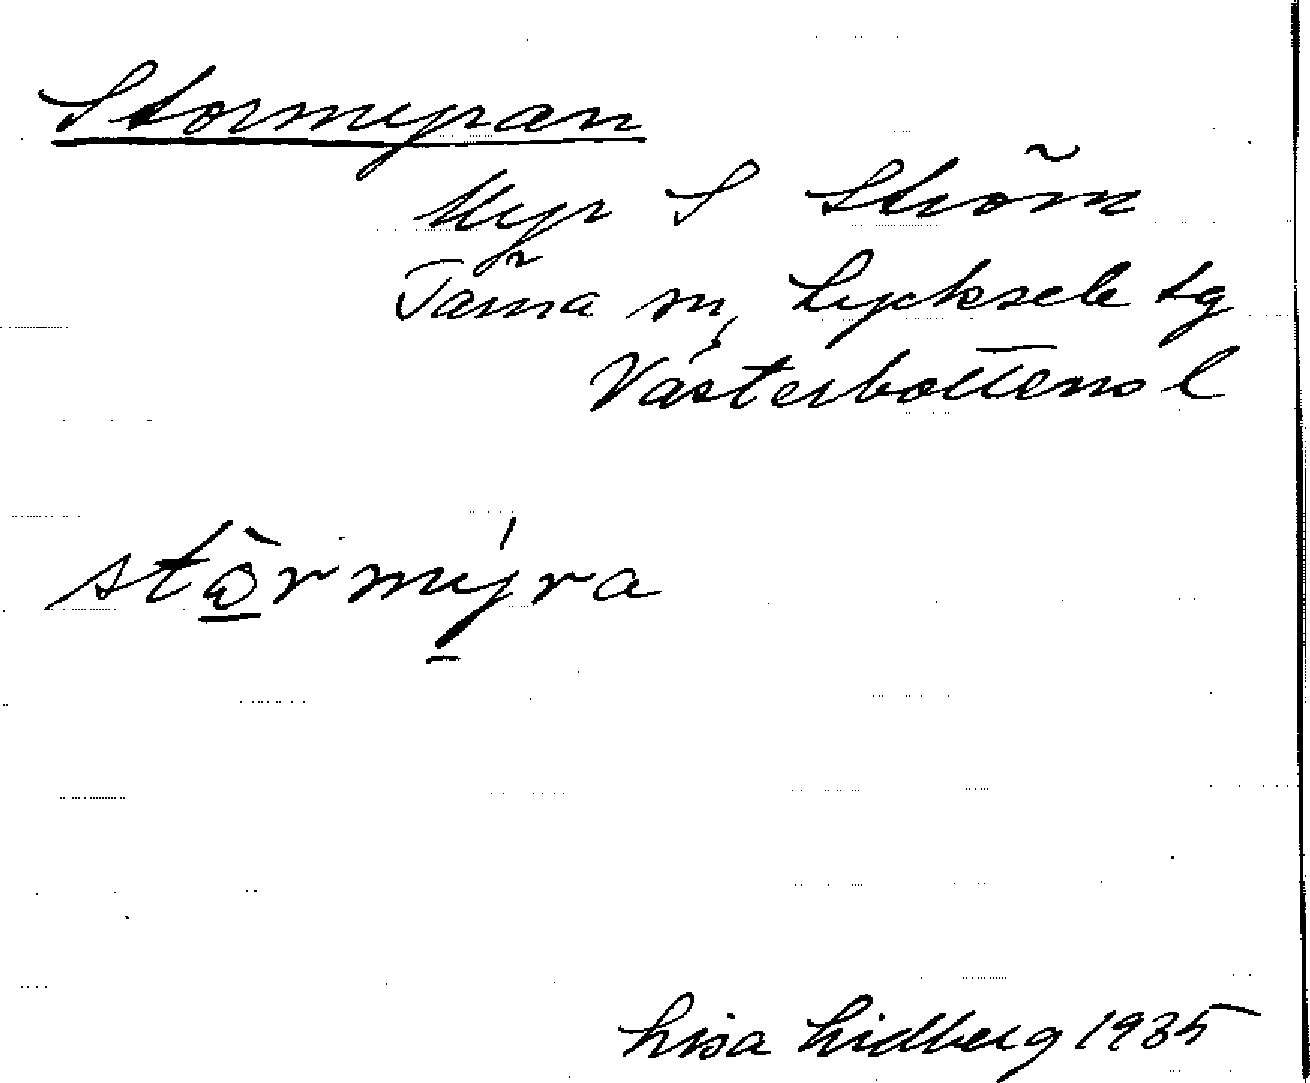 Stormyran
Myr S Ström
Tärna sn, Lycksele tg
Västerbottens l
stòrmýra
Lisa Lidberg 1935